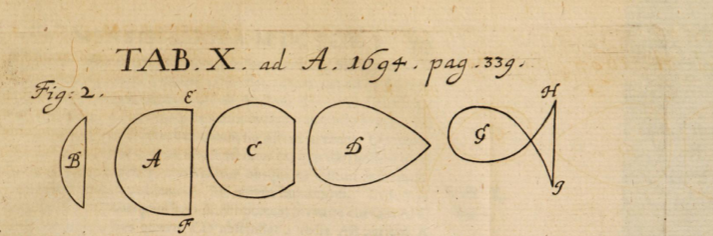 TAB. X. ad A. 1694. pag. 339.
Fig: 2.
E
H
B
A
C
D
G
F
g